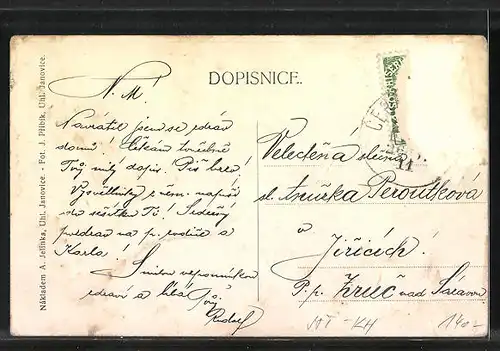 DOPISNICE.
Nákladem A. Jelínka, Uhl. Janovice. - Fot. J. Pilbík, Uhl. Janovice.
N. M.!
Navrátil jsem se zdráv
domů! Čekám toužebně
Tvůj milý dopis. Piš brzy!
Vysvětlivky k nám. napíši
do sešitku Ti! Srdečný
pozdrav na p. rodiče a
Karla!
S milou vzpomínkou
zdraví a líbá Tvůj
Rudolf
Veletěná slečna
sl. Anuška Peroutková
v
Jiřicích!
P. p. Zruč nad Sázavou
MT - KH
140,-